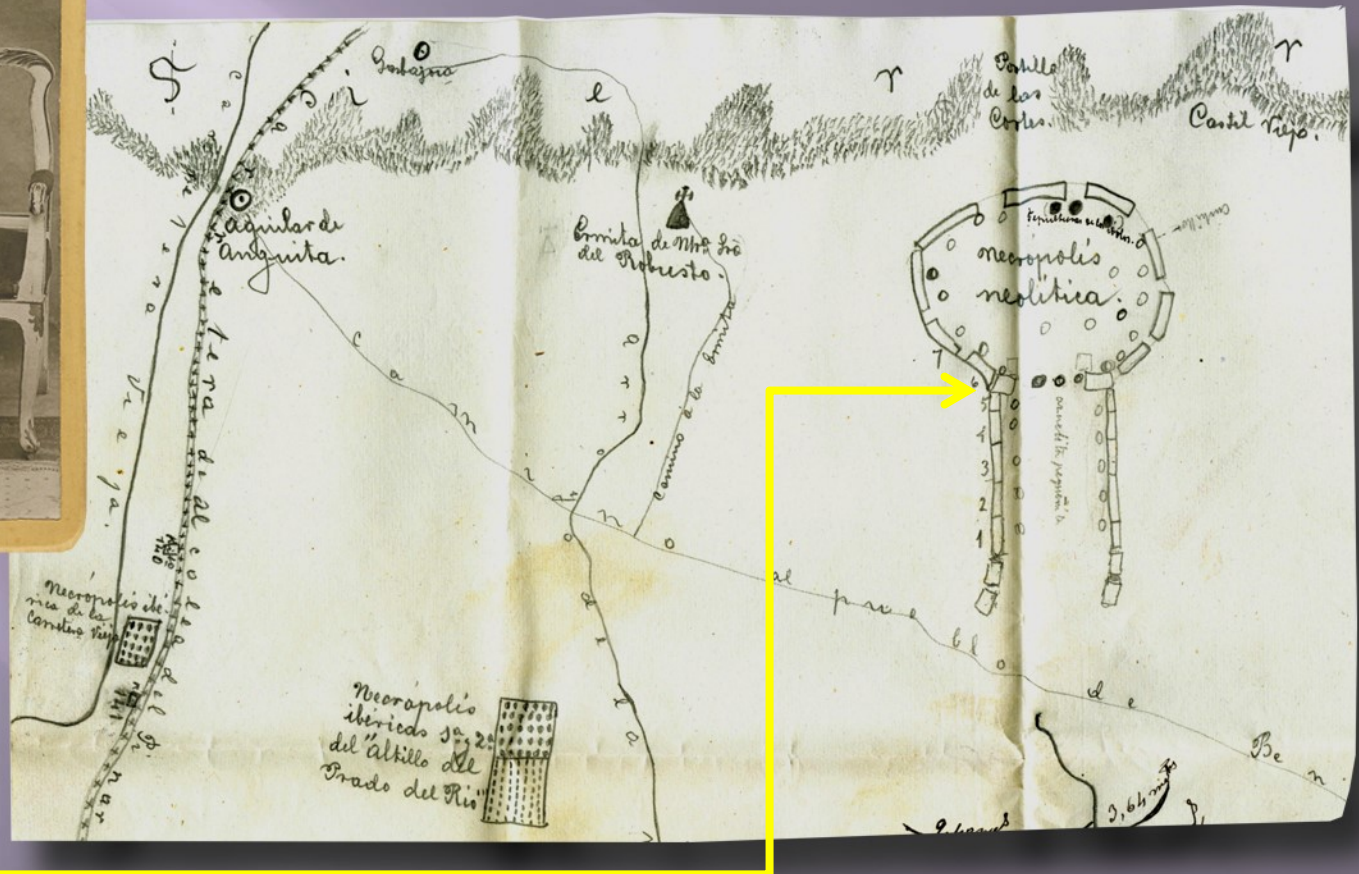 S i e r r
Garbajosa
Portillo
de las
Cortes.
Castil Viejo.
Aguilar de
Anguita.
Ermita de Ntra Sra
del Robusto.
necropolis
neolítica.
Castillo
7
6
5
4
3
2
1
anchita pequeña
Carretera Vieja.
Carretera de Alcolea del Pinar
Camino al pueblo de Ben
Camino a la Ermita
arroyo de la
Necrópolis ibé-
rica de la
Carretera Vieja
Necrópolis
ibéricas 1ª y 2ª
del "Altillo del
Prado del Rio"
3,64 mts